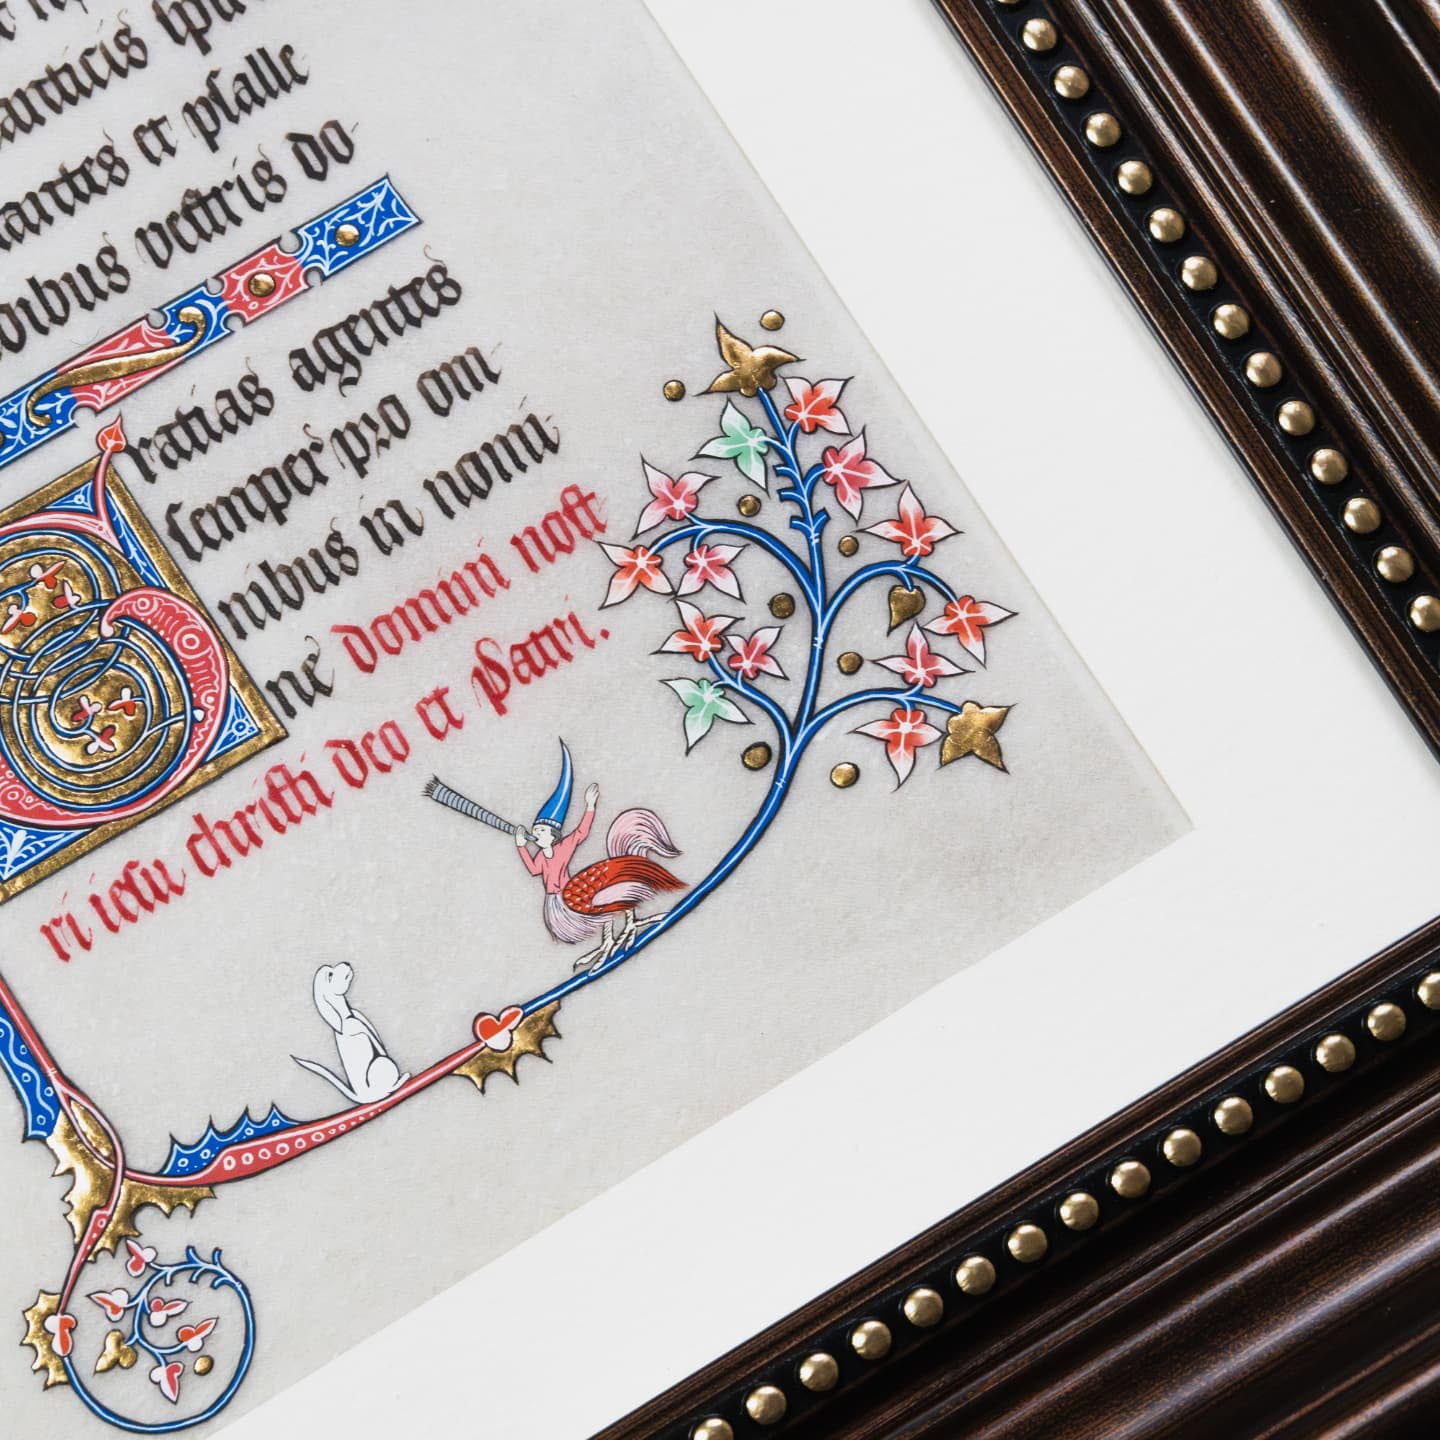 anticis
antes et pſalle
dibus veſtris do-
Gratias agentes
ſemper pro om-
nibus in nomi
ne domini noſt
ri ieſu chriſti deo et Patri.